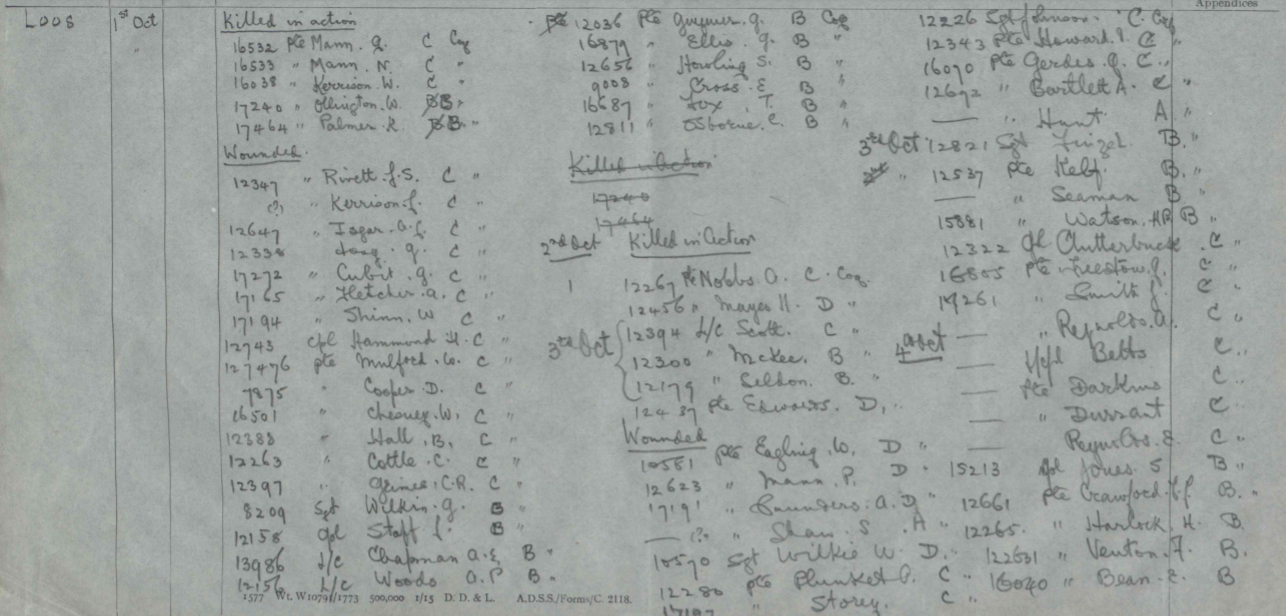 Appendices
LOOS 1st Oct Killed in action
16532 Pte Mann. G. C Coy
16533 " Mann. N. C "
16038 " Kerrison. W. C "
17240 " Ollington. W. B "
17464 " Palmer. R. B "
Wounded.
12347 " Rivett. J. S. C "
(?) " Kerrison. J. C "
12647 " C "
G. C "
17272 " Cubit. G. C "
17165 " Fletcher. A. C "
17194 " Shinn. W C "
12743 Cpl Hammond H. C "
127476 Pte Mulford. W. C "
7875 " Cooper D. C "
16501 " Chesney. W. C "
12388 " Hall, B, C "
12263 " Cottle. C. C "
12397 " C. R. C "
8209 Sgt Wilkin. G. B "
12158 Cpl Staff J. B "
13986 L/C Chapman A. E, B "
12156 L/C Woods A. P B "
1577 Wt. W10791/1773 500,000 1/15 D. D. & L. A.D.S.S./Forms/C. 2118.
Pte 12036 Pte G. B Coy
16879 " Ellis. G. B "
12656 " Howling S. B "
9008 " Cross. E B "
16687 " Fox. T. B "
12811 " Osborne. C. B "
Killed in Action
17240
17464
2nd Oct Killed in Action
1 12267 Pte Nobbs A. C. Coy.
12456 " Mayes H. D "
3rd Oct 12394 L/C Scott. C "
12300 " McKee. B "
12179 " Seldon. B. "
12437 Pte Edwards. D, "
Wounded
10581 Pte Eagling. W, D "
12623 " Mann. P. D "
1719 " Saunders. A. D "
— (?) " Shaw. S. A "
10570 Sgt Wilkie W. D. "
12280 Pte Plunket A. C "
" Storey. C "
12226 Sgt Johnson. C. Coy
12343 Pte Howard. I. C "
16070 Pte Gerdes. G. C "
12692 " Bartlett A. C "
— " Hunt A "
3rd Oct 12821 Sgt B. "
" 12537 Pte Kelf. B. "
— " Seaman B "
15881 " Watson. HR B "
12322 Cpl Clutterbuck. C "
16805 Pte C "
19261 " Smith J. C "
— " Reynolds. A. C "
4th Oct — L/Cpl Betts C "
— Pte Darkins C "
— " Durrant C
— Reynolds. E. C "
15213 Cpl Jones. S B "
12661 Pte Crawford B. "
12265. " Harlock, H. B.
122631 " Venton. F. B.
16040 " Bean. E. B